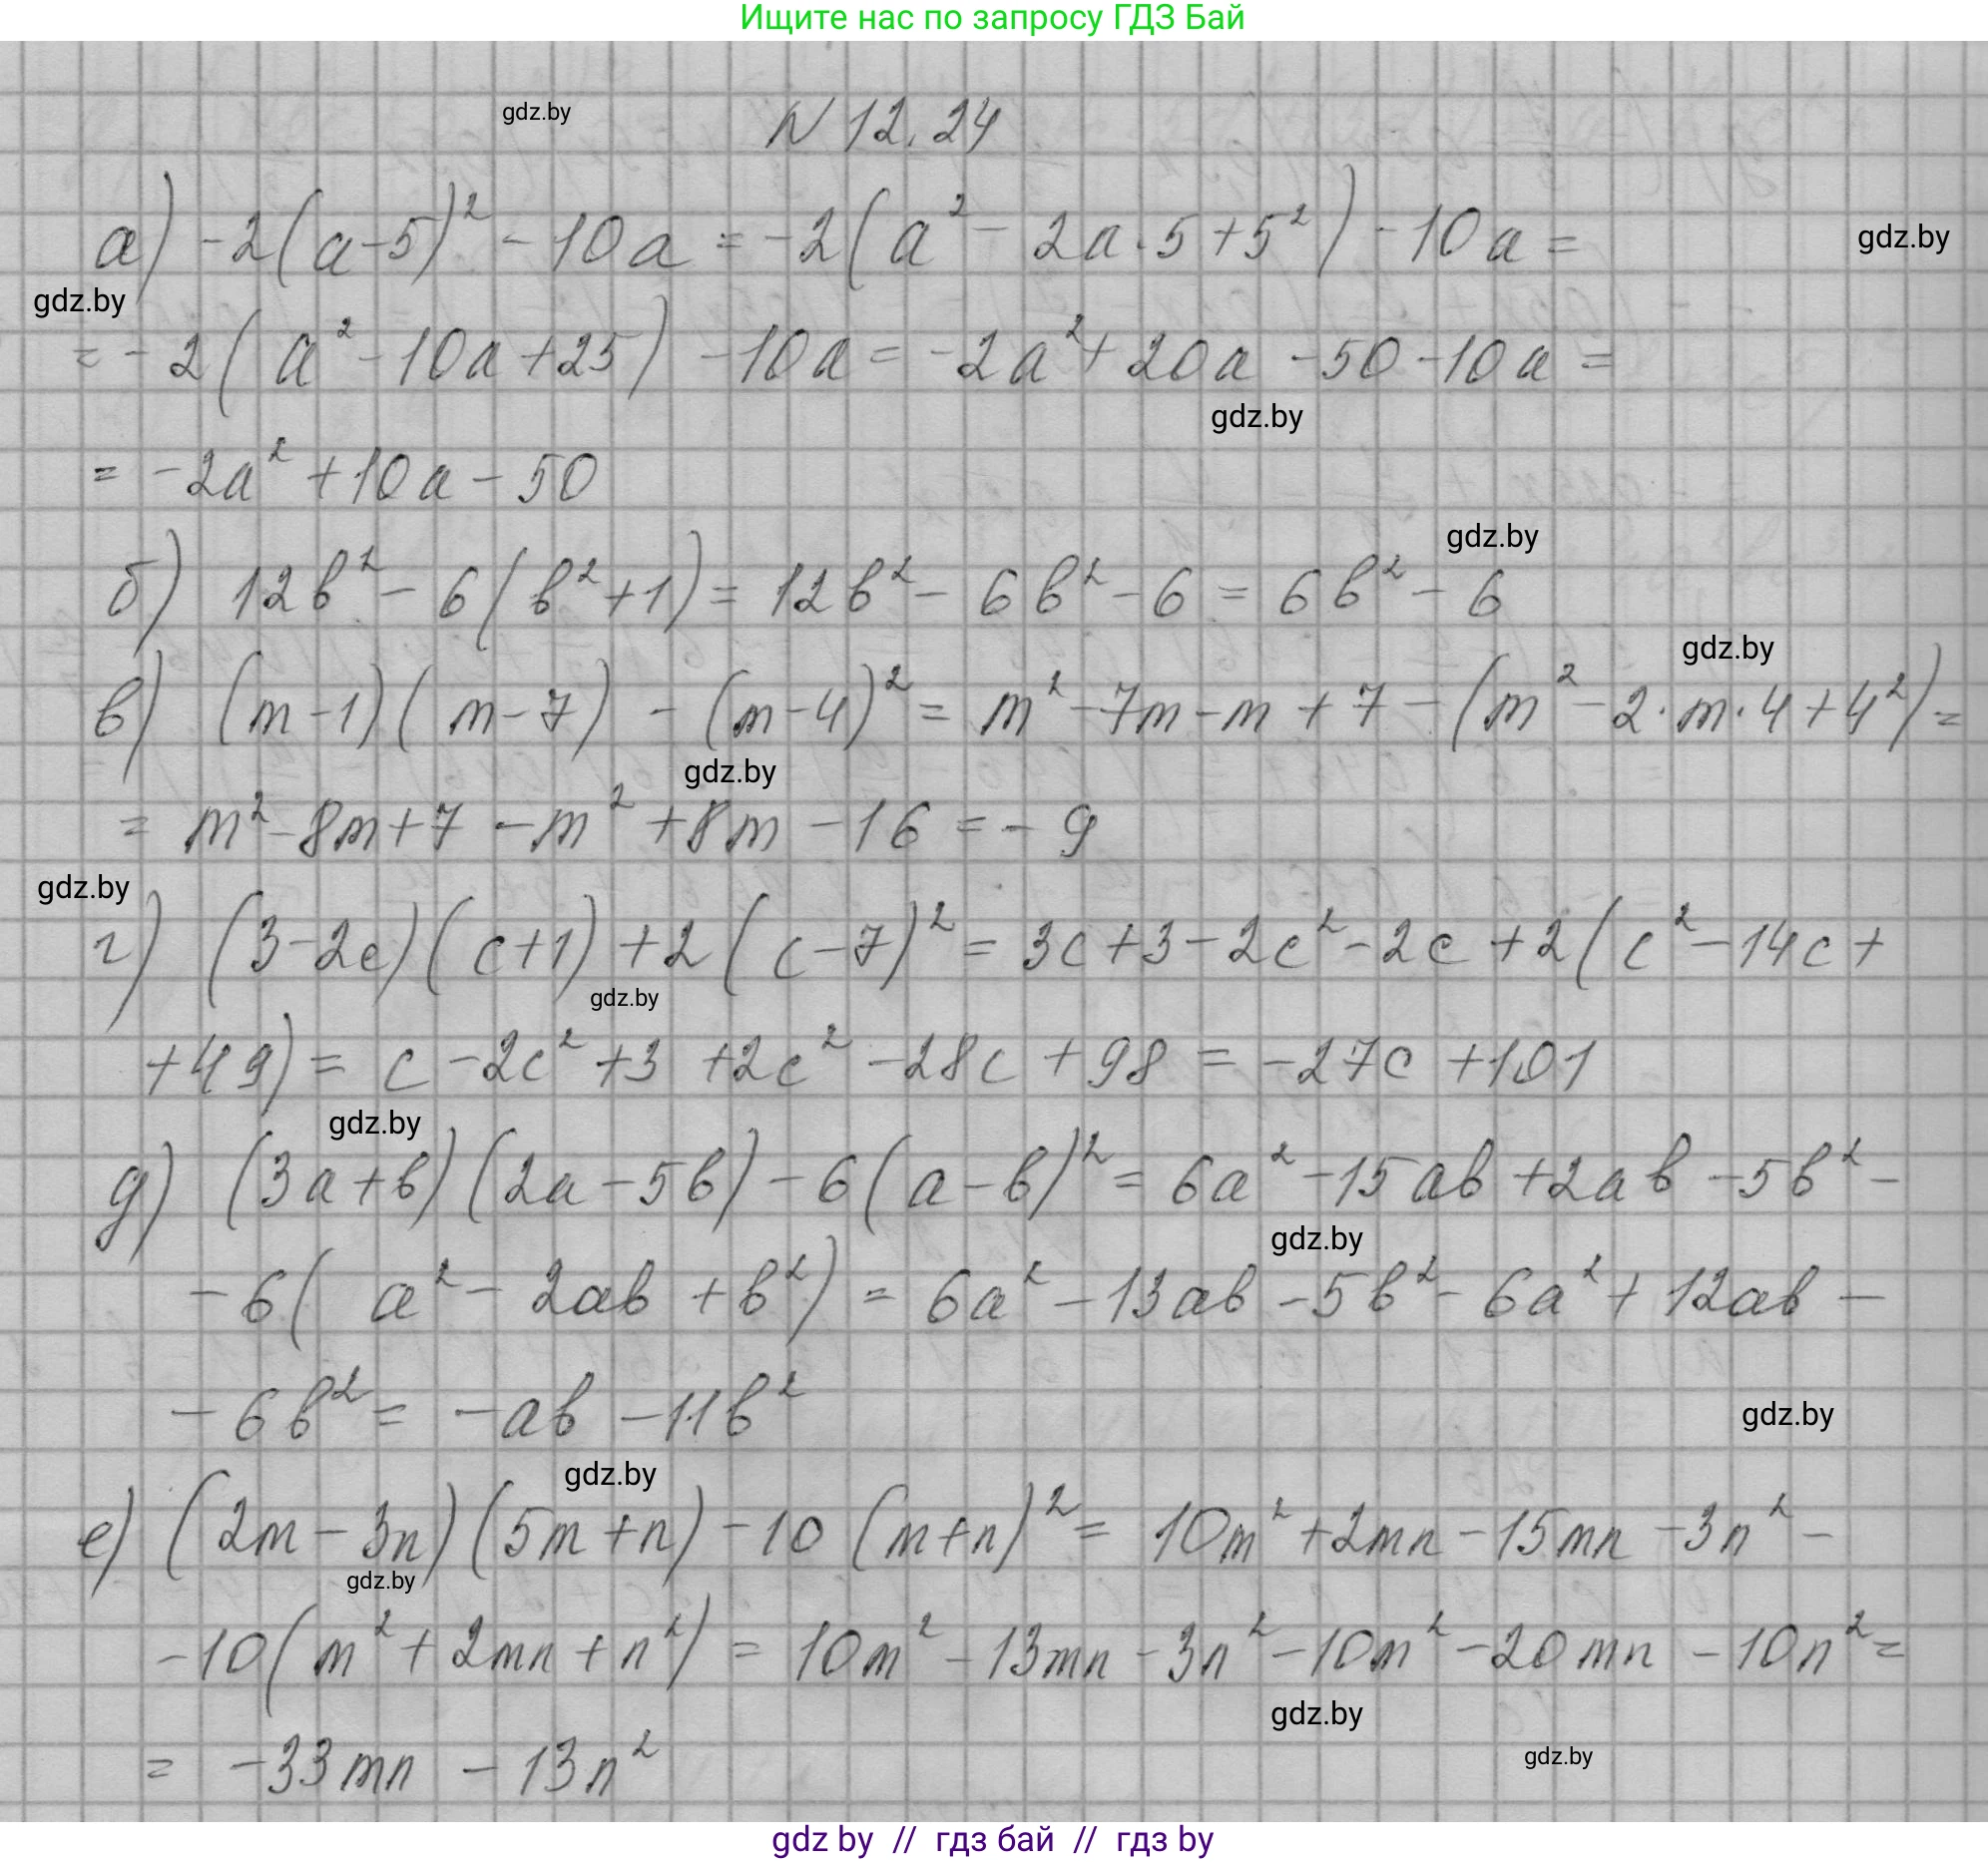 Ищите нас по запросу ГДЗ Бай
gdz.by
N 12.24
а) -2(a-5)² - 10a = -2(a² - 2a·5+5²) - 10a =
gdz.by
gdz.by
= -2(a² - 10a + 25) - 10a = -2a² + 20a - 50 - 10a =
gdz.by
= -2a² + 10a - 50
gdz.by
б) 12b² - 6(b²+1) = 12b² - 6b² - 6 = 6b² - 6
gdz.by
в) (m-1)(m-7) - (m-4)² = m² - 7m - m + 7 - (m² - 2·m·4+4²) =
gdz.by
= m² - 8m + 7 - m² + 8m - 16 = - 9
gdz.by
г) (3-2c)(c+1) + 2(c-7)² = 3c + 3 - 2c² - 2c + 2(c² - 14c +
gdz.by
+49) = c - 2c² + 3 + 2c² - 28c + 98 = -27c + 101
gdz.by
д) (3a+b)(2a-5b) - 6(a-b)² = 6a² - 15ab + 2ab - 5b² -
gdz.by
-6(a² - 2ab + b²) = 6a² - 13ab - 5b² - 6a² + 12ab -
- 6b² = -ab - 11b²
gdz.by
gdz.by
е) (2m-3n)(5m+n) - 10(m+n)² = 10m² + 2mn - 15mn - 3n² -
gdz.by
-10(m² + 2mn + n²) = 10m² - 13mn - 3n² - 10m² - 20mn - 10n² =
gdz.by
gdz.by
= -33mn - 13n²
gdz by // гдз бай // гдз by